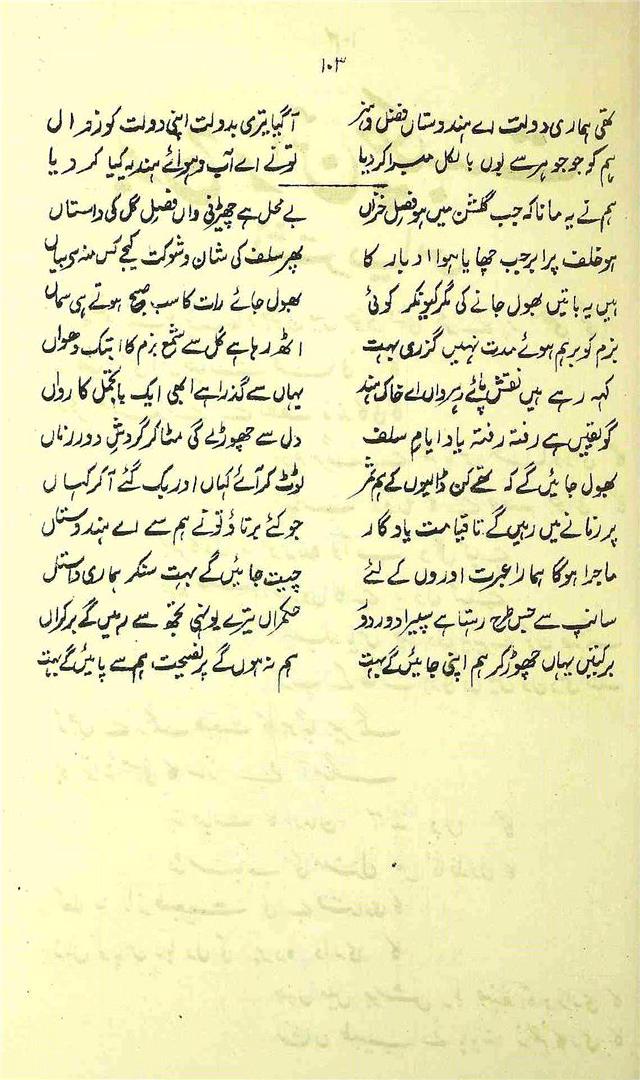 ۱۰۳
تھی ہماری دولت اے ہندوستاں فضل و ہنر آ گیا تیری بدولت اپنی دولت کو زوال
ہم کو جو ہر سے یوں بالکل مبرا کر دیا تونے اے آب و ہوائے ہند یہ کیا کر دیا
ہم نے یہ مانا کہ جب گلشن میں ہو فصل خزاں بے محل ہے چھیڑنی واں فصیل گل کی داستاں
ہو خلف پر ابر جب چھایا ہوا ادبار کا پھر سلف کی شان و شوکت کیجے کس منہ سے بیاں
ہیں یہ باتیں بھول جانے کی مگر کیونکر کوئی بھول جائے رات کا سب صبح ہوتے ہی سماں
بزم کو برہم ہوئے مدت نہیں گزری بہت اٹھ رہا ہے گل سے شمع بزم کا ابتک دھواں
کہہ رہے ہیں نقش پائے رہرواں اے خاک ہند یہاں سے گذرا ہے ابھی ایک باتجمل کارواں
گو یقیں ہے رفتہ رفتہ یاد ایامِ سلف دل سے چھوڑے گی مٹا کر گردشِ دور زماں
بھول جائیں گے کہ تھے کن ڈالیوں کے ہم ثمر ٹوٹ کر آئے کہاں اور بک گئے آ کر کہاں
پر زمانے میں رہیں گے تا قیامت یادگار جو کئے برتاؤ تونے ہم سے اے ہندوستاں
ماجرا ہوگا ہمارا عبرت اوروں کے لئے چیت جائیں گے بہت سنکر ہماری داستاں
سانپ سے جس طرح رہتا ہے سپیرا دور دور حکمراں تیرے یونہی تجھ سے رہیں گے برکراں
برکتیں یہاں چھوڑ کر ہم اپنی جائیں گے بہت ہم نہ ہوں گے پر نصیحت ہم سے پائیں گے بہت